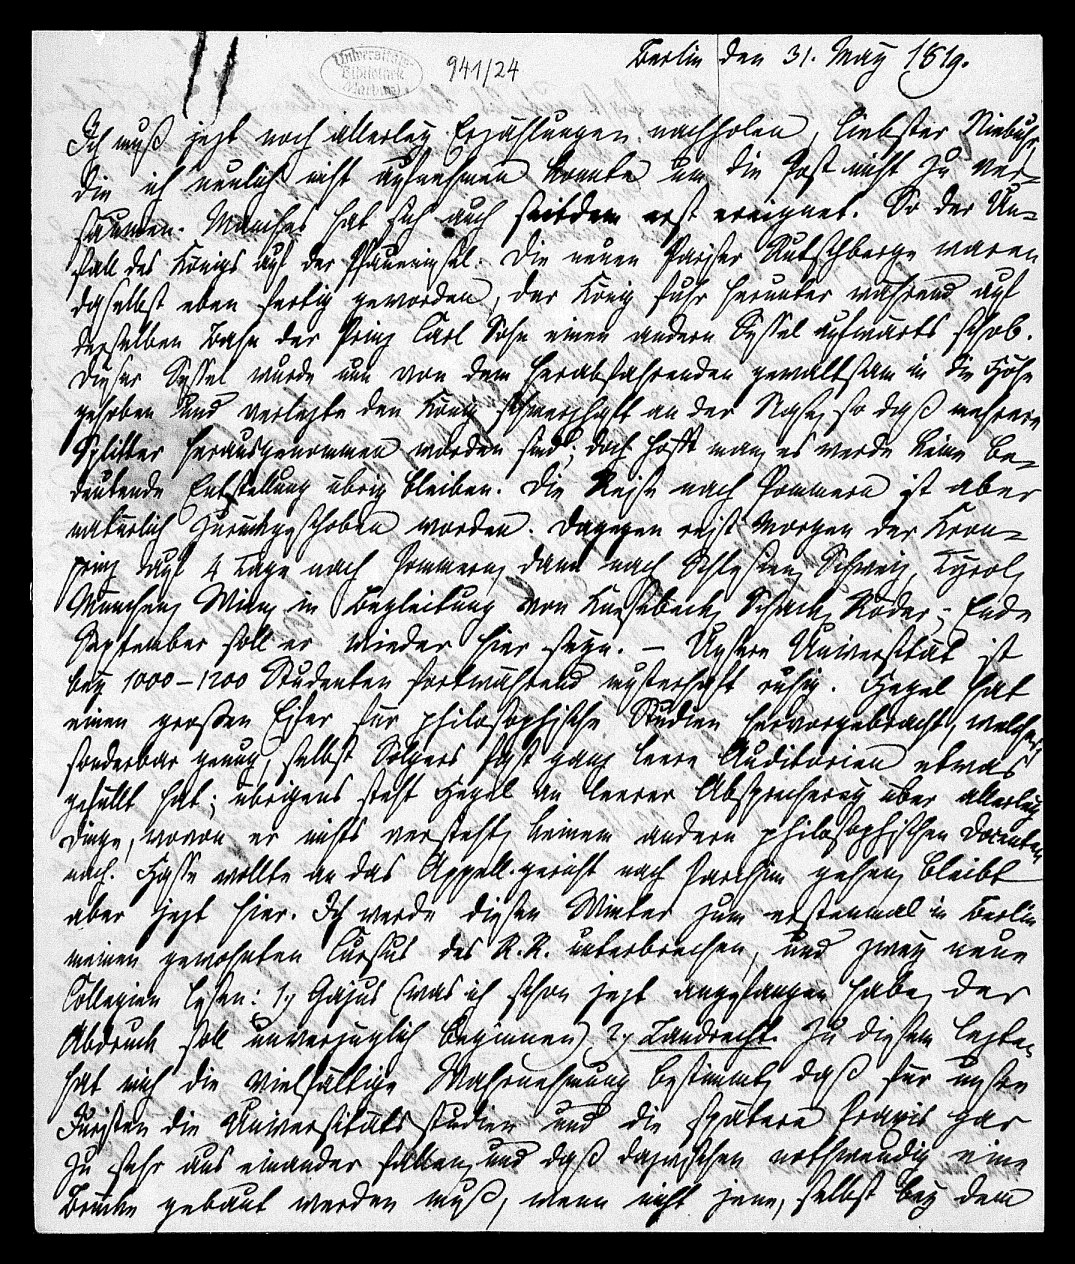 Universitäts-
Bibliothek
Marburg
941/24
Berlin den 31. May 1819.
Ich muß jezt noch allerley Erzählungen nachholen, liebster Niebuhr,
die ich neulich nicht aufnehmen konnte um die Post nicht zu ver-
säumen. Manches hat sich auch seitdem erst ereignet. So der Un-
fall des Königs auf der Pfaueninsel. Die neuen Pariser Rutschberge waren
daselbst eben fertig geworden, der König fuhr herunter während auf
derselben Bahn der Prinz Carl Sohn einen andern Sessel aufwärts schob.
Dieser Sessel wurde nun von dem herabfahrenden gewaltsam in die Höhe
gehoben und verlezte den König schmerzhaft an der Nase, so daß mehrere
Splitter herausgenommen worden sind, doch hofft man, es werde keine be-
deutende Entstellung übrig bleiben. Die Reise nach Pommern ist aber
natürlich zurückgeschoben worden. Dagegen reist Morgen der Kron-
prinz auf 4 Tage nach Pommern, dann nach Schlesien, Schweiz, Tyrol,
München, Wien, in Begleitung von Knesebeck, Schack, Röder; Ende
September soll er wieder hier seyn. – Unsere Universität ist
bey 1000–1200 Studenten fortwährend musterhaft ruhig. Hegel hat
einen großen Eifer für philosophische Studien hervorgebracht, welcher
sonderbar genug, selbst Solgers fast ganz leere Auditorien etwas
gefüllt hat; übrigens steht Hegel an leerer Absprecherey über allerley
Dinge, wovon er nichts versteht, keinem andern philosophischen Docenten
nach. Hasse wollte an das Appell.gericht nach Parchim gehen, bleibt
aber jezt hier. Ich werde diesen Winter zum erstenmal in Berlin
meinen gewohnten Cursus des R.R. unterbrechen, und zwey neue
Collegien lesen: 1.) Gajus (was ich schon jezt angefangen habe, der
Abdruck soll unverzüglich beginnen) 2.) Landrecht. Zu diesem lezten
hat mich die vielfältige Wahrnehmung bestimmt, daß für unsre
Juristen die Universitätsstudien und die spätere Praxis gar
zu sehr aus einander fallen, und daß dazwischen nothwendig eine
Brücke gebaut werden muß, wenn nicht jene, selbst bey dem